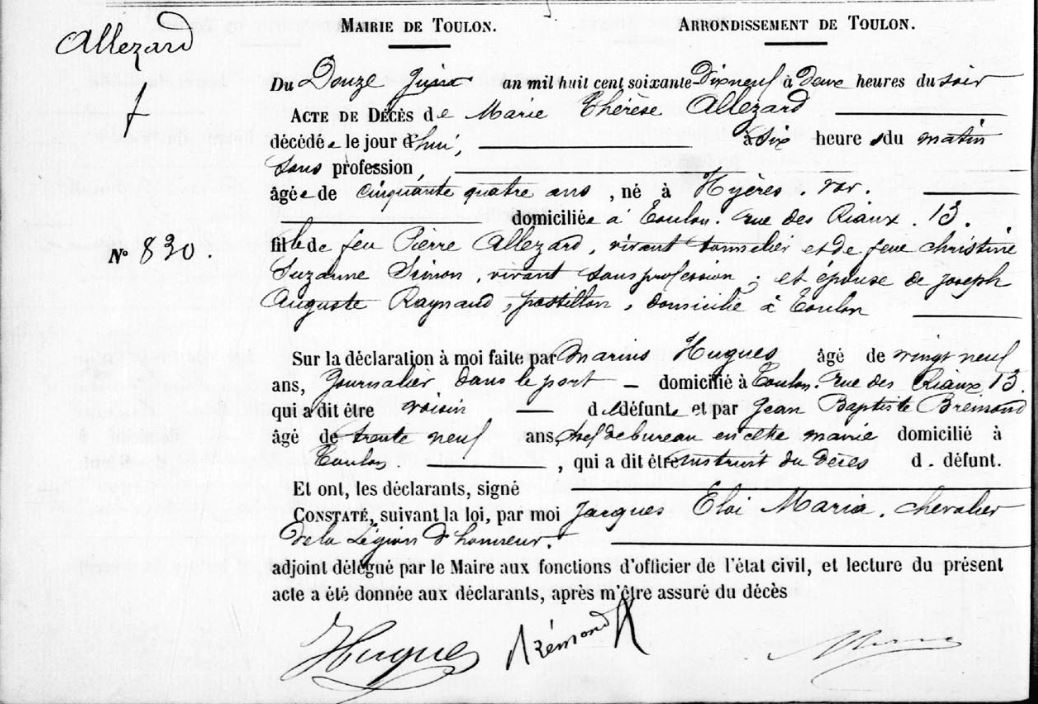 MAIRIE DE TOULON. ARRONDISSEMENT DE TOULON.
Allezard
Du Douze Juin an mil huit cent soixante Dix neuf à Deux heures du soir
ACTE DE DÉCÈS de Marie Thérèse Allezard
décédée le jour d'hui, à six heures du matin
sans profession,
âgée de cinquante quatre ans, né à Hyères. var.
domiciliée à Toulon. rue des Riaux. 13.
N° 830.
fille de feu Pierre Allezard, vivant tonnelier et de feue Christine
Suzanne Simon, vivant sans profession; et épouse de joseph
Auguste Raynaud, postillon, domicilié à Toulon
Sur la déclaration à moi faite par Marius Hugues âgé de vingt neuf
ans, journalier dans le port – domicilié à Toulon. rue des Riaux 13.
qui a dit être voisin — de la défunte et par Jean Baptiste Brémond
âgé de trente neuf ans, chef de bureau en cette mairie domicilié à
Toulon. , qui a dit être instruit du décès d. défunt.
Et ont, les déclarants, signé
CONSTATÉ, suivant la loi, par moi Jacques Eloi Maria, chevalier
de la Légion d'honneur.
adjoint délégué par le Maire aux fonctions d'officier de l'état civil, et lecture du présent
acte a été donnée aux déclarants, après m'être assuré du décès
Hugues Brémond